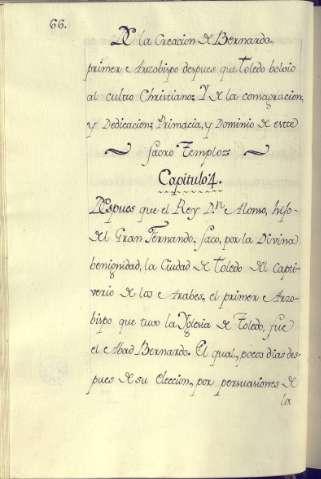 66.
De la Creacion de Bernardo,
primer Arzobispo despues que Toledo bolvio
al cultro Christiano; Y de la consagracion,
y Dedicacion; Primacia, y Dominio de este
sacro Templo::
Capitulo 4.
Despues que el Rey Dn. Alonso, hijo
del Gran Fernando, saco, por la Divina
benignidad, la Ciudad de Toledo del capti-
verio de los Arabes, el primer Arzo-
bispo que tuvo la Yglesia de Toledo, fue
el Abad Bernardo. El qual, pocos dias des-
pues de su Eleccion, por persuasiones de
la